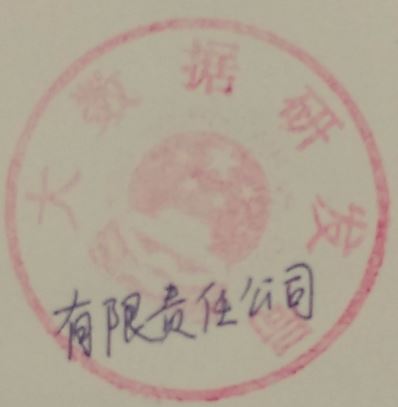 大数据研发
有限责任公司